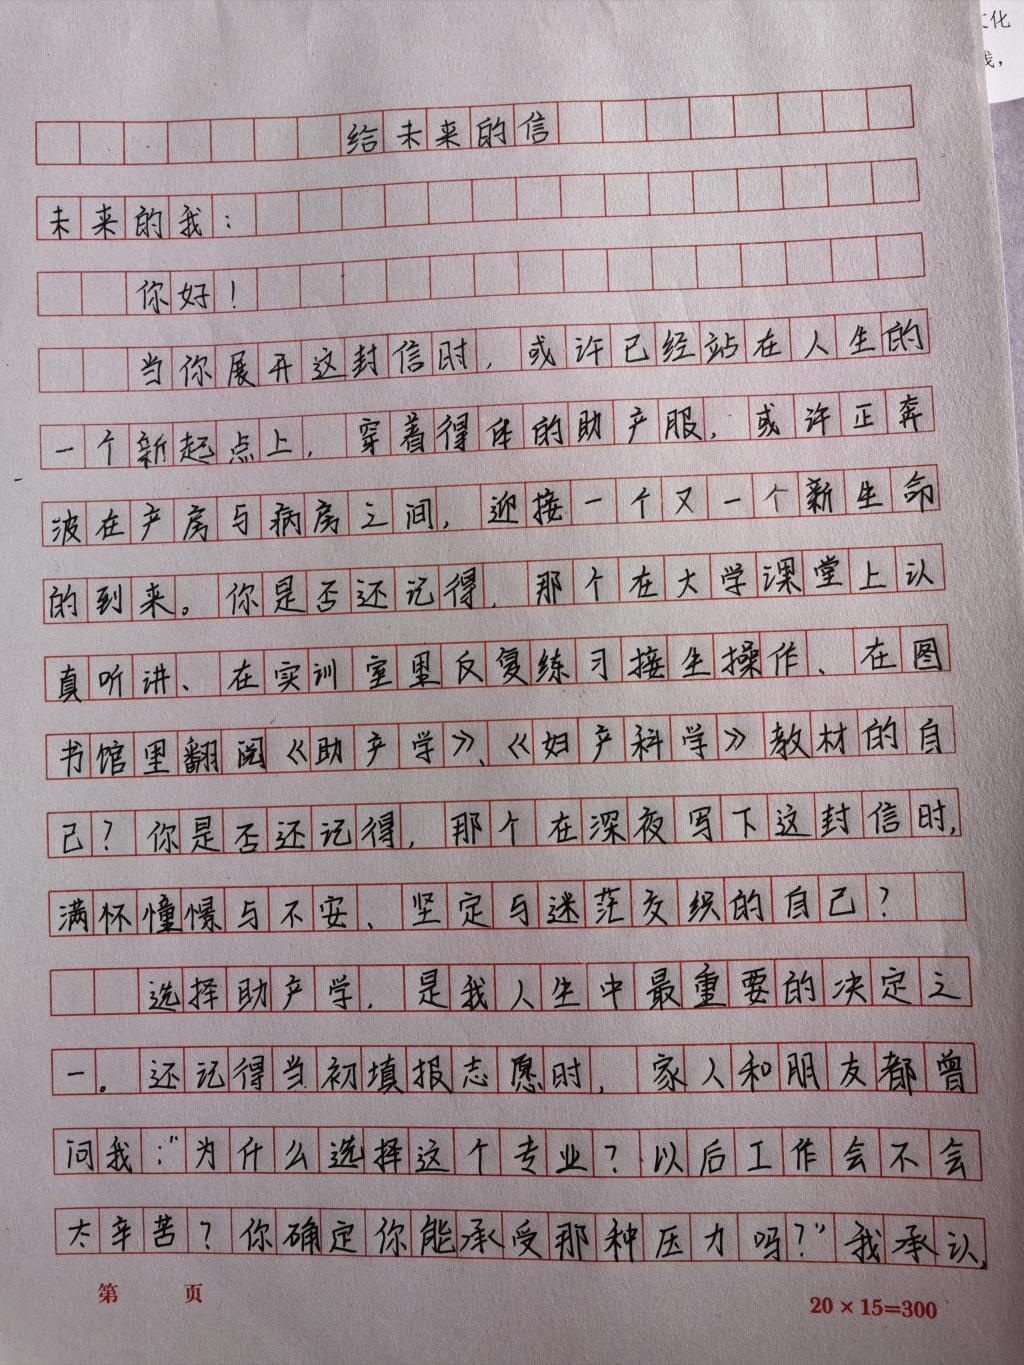 文化
给未来的信
未来的我：
你好！
当你展开这封信时，或许已经站在人生的
一个新起点上，穿着得体的助产服，或许正奔
波在产房与病房之间，迎接一个又一个新生命
的到来。你是否还记得，那个在大学课堂上认
真听讲、在实训室里反复练习接生操作、在图
书馆里翻阅《助产学》、《妇产科学》教材的自
己？你是否还记得，那个在深夜写下这封信时，
满怀憧憬与不安、坚定与迷茫交织的自己？
选择助产学，是我人生中最重要的决定之
一。还记得当初填报志愿时，家人和朋友都曾
问我："为什么选择这个专业？以后工作会不会
太辛苦？你确定你能承受那种压力吗？"我承认，
第 页
20×15=300